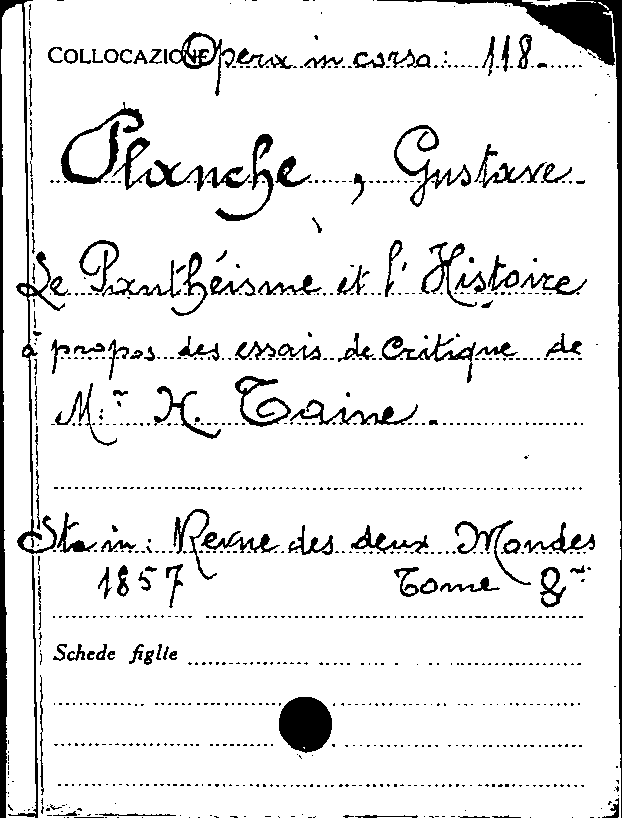 COLLOCAZIONE Opera in corso: 118.
Planche, Gustave
Le Panthéisme et l'Histoire
à propos des essais de Critique de
M.r H. Taine.
Sta in: Revue des deux Mondes
1857 Tome 8me
Schede figlie